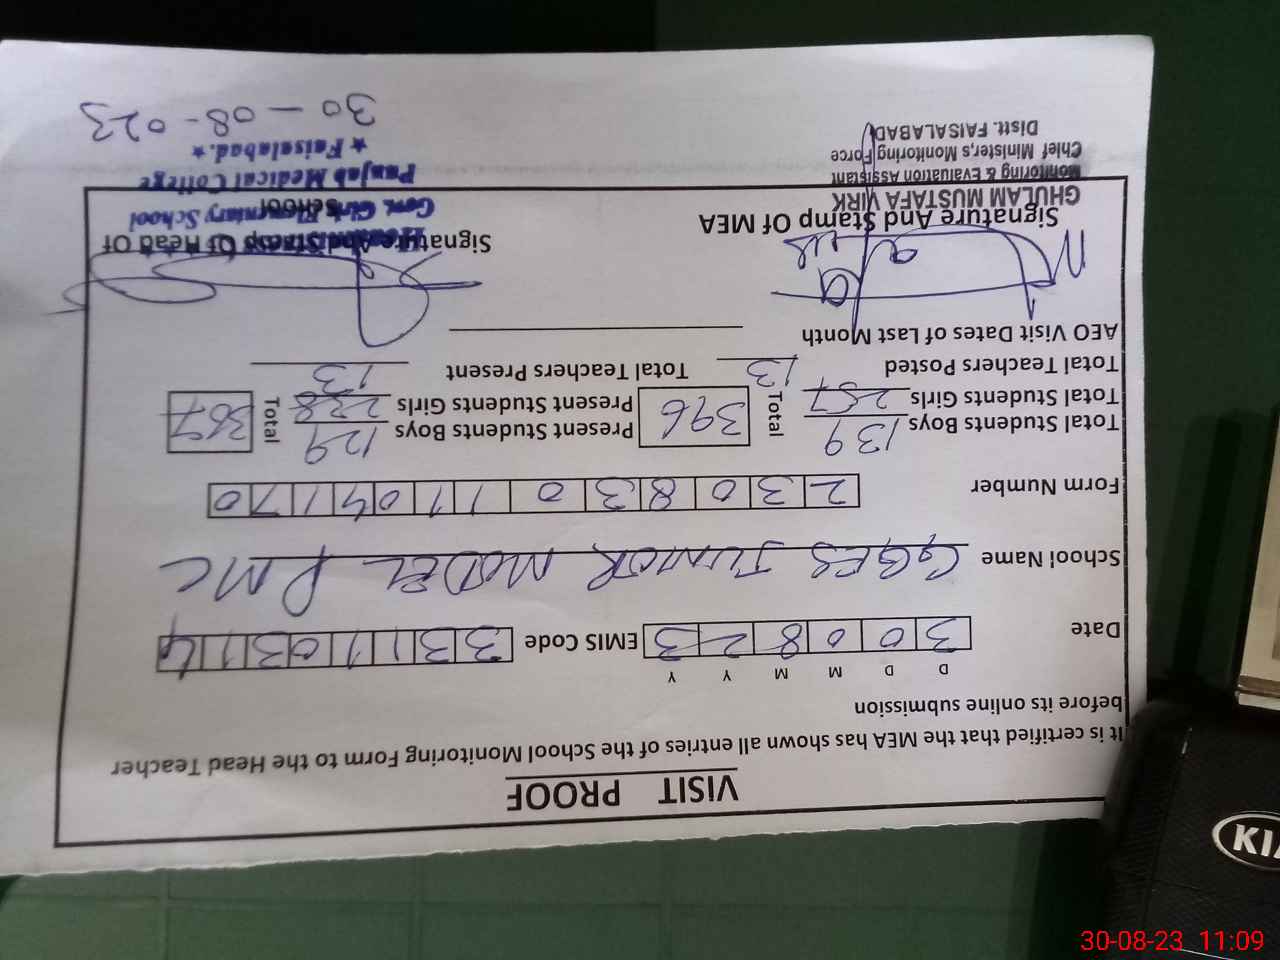 VISIT PROOF
It is certified that the MEA has shown all entries of the School Monitoring Form to the Head Teacher
before its online submission
D D M M Y Y
Date 3 0 0 8 2 3 EMIS Code 3 3 1 1 0 3 1 4
School Name GGES JUNIOR MODEL PMC
Form Number 2 3 0 8 3 0 1 1 0 4 1 7 0
Total Students Boys 139 Total 396 Present Students Boys 129 Total 357
Total Students Girls 257 Present Students Girls 228
Total Teachers Posted 13 Total Teachers Present 13
AEO Visit Dates of Last Month
Signature And Stamp Of MEA Signature And Stamp Of Head Of
School
GHULAM MUSTAFA VIRK
Monitoring & Evaluation Assistant
Chief Minister,s Monitoring Force
Distt. FAISALABAD
Govt. Girls Elementary School
Punjab Medical College
★ Faisalabad. ★
30-08-023
KIA
30-08-23 11:09